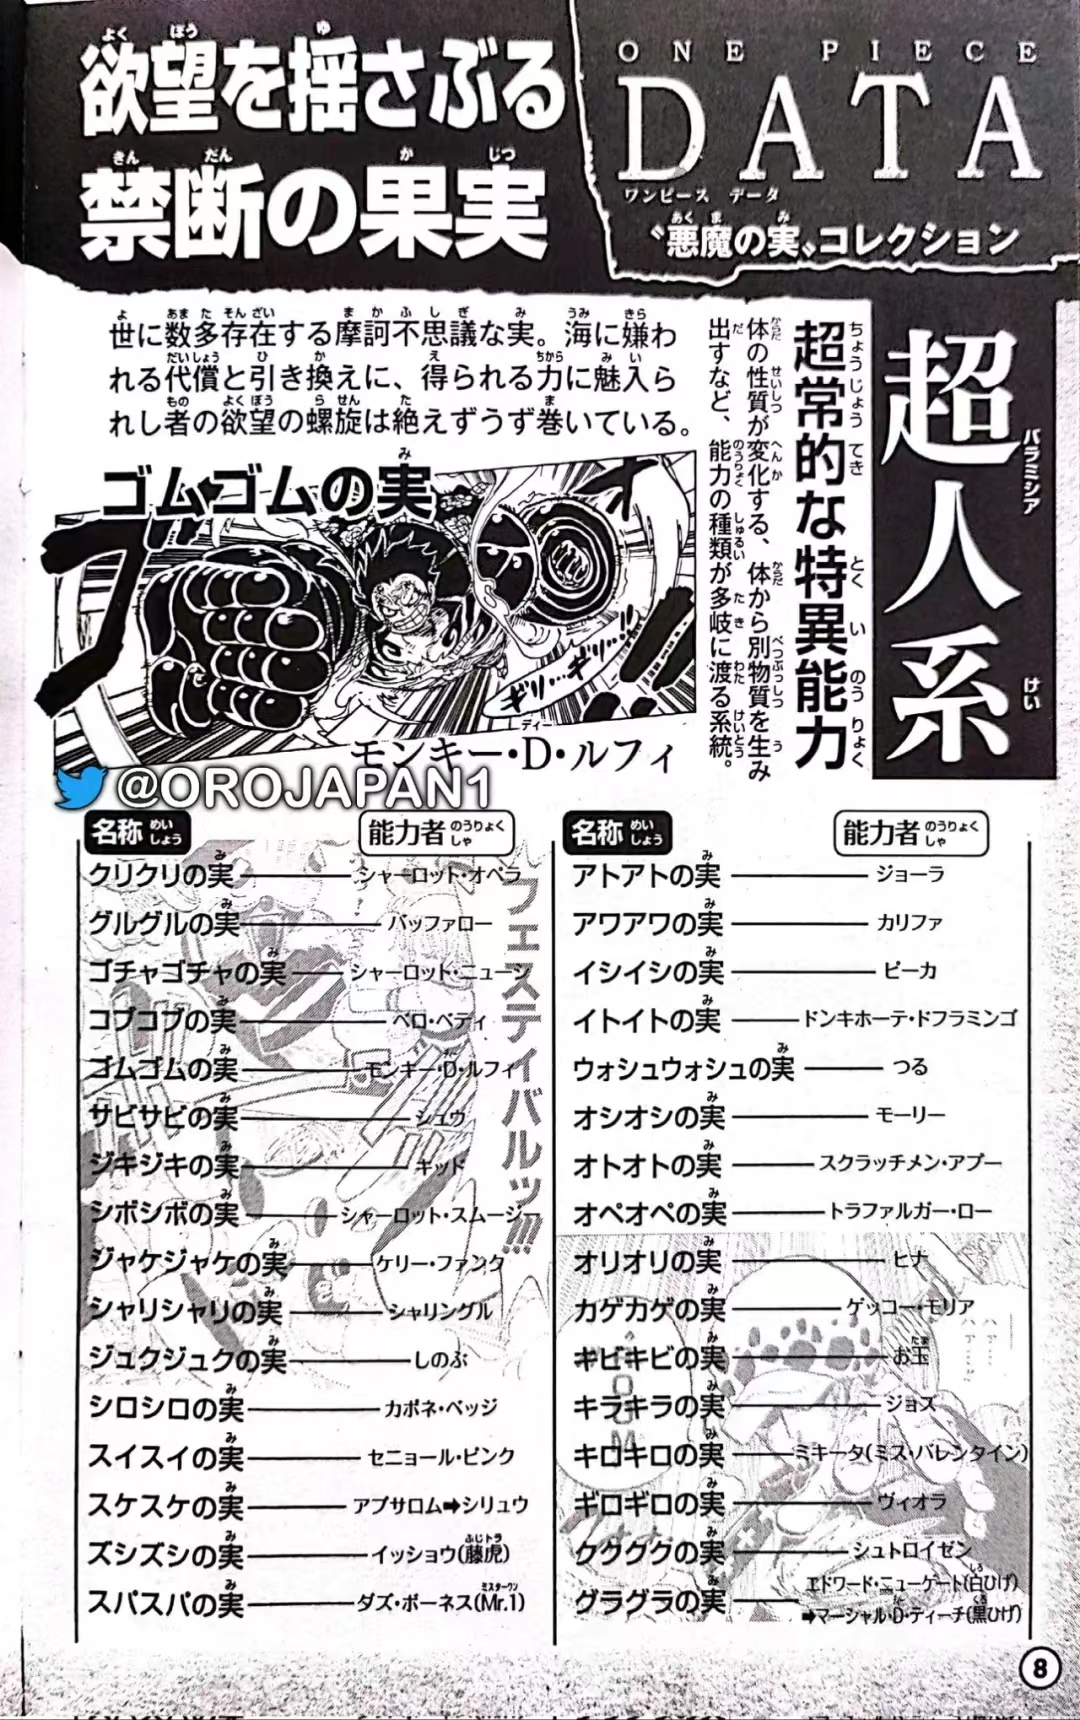 欲望を揺さぶる
禁断の果実
ONE PIECE
DATA
ワンピース データ
“悪魔の実”コレクション
世に数多存在する摩訶不思議な実。海に嫌わ
れる代償と引き換えに、得られる力に魅入ら
れし者の欲望の螺旋は絶えずうず巻いている。
超人系
パラミシア
けい
超常的な特異能力
体の性質が変化する、体から別物質を生み
出すなど、能力の種類が多岐に渡る系統。
ゴムゴムの実
ブオ
ギリ…ギリ…!!
モンキー・D・ルフィ
@OROJAPAN1
名称 めいしょう 能力者 のうりょくしゃ
アトアトの実 ジョーラ
アワアワの実 カリファ
イシイシの実 ピーカ
イトイトの実 ドンキホーテ・ドフラミンゴ
ウォシュウォシュの実 つる
オシオシの実 モーリー
オトオトの実 スクラッチメン・アプー
オペオペの実 トラファルガー・ロー
オリオリの実 ヒナ
カゲカゲの実 ゲッコー・モリア
キビキビの実 お玉
キラキラの実 ジョズ
キロキロの実 ミキータ(ミス・バレンタイン)
ギロギロの実 ヴィオラ
ククククの実 シュトロイゼン
グラグラの実 エドワード・ニューゲート(白ひげ)
➡マーシャル・D・ティーチ(黒ひげ)
名称 めいしょう 能力者 のうりょくしゃ
クリクリの実 シャーロット・オペラ
グルグルの実 バッファロー
ゴチャゴチャの実 シャーロット・ニューシ
コブコブの実 ベロ・ベティ
ゴムゴムの実 モンキー・D・ルフィ
サビサビの実 シュウ
ジキジキの実 キッド
シボシボの実 シャーロット・スムージー
ジャケジャケの実 ケリー・ファンク
シャリシャリの実 シャリングル
ジュクジュクの実 しのぶ
シロシロの実 カポネ・ベッジ
スイスイの実 セニョール・ピンク
スケスケの実 アブサロム➡シリュウ
ズシズシの実 イッショウ(藤虎)
スパスパの実 ダズ・ボーネス(Mr.1)
フェスティバルッ!!!
ROOM
8